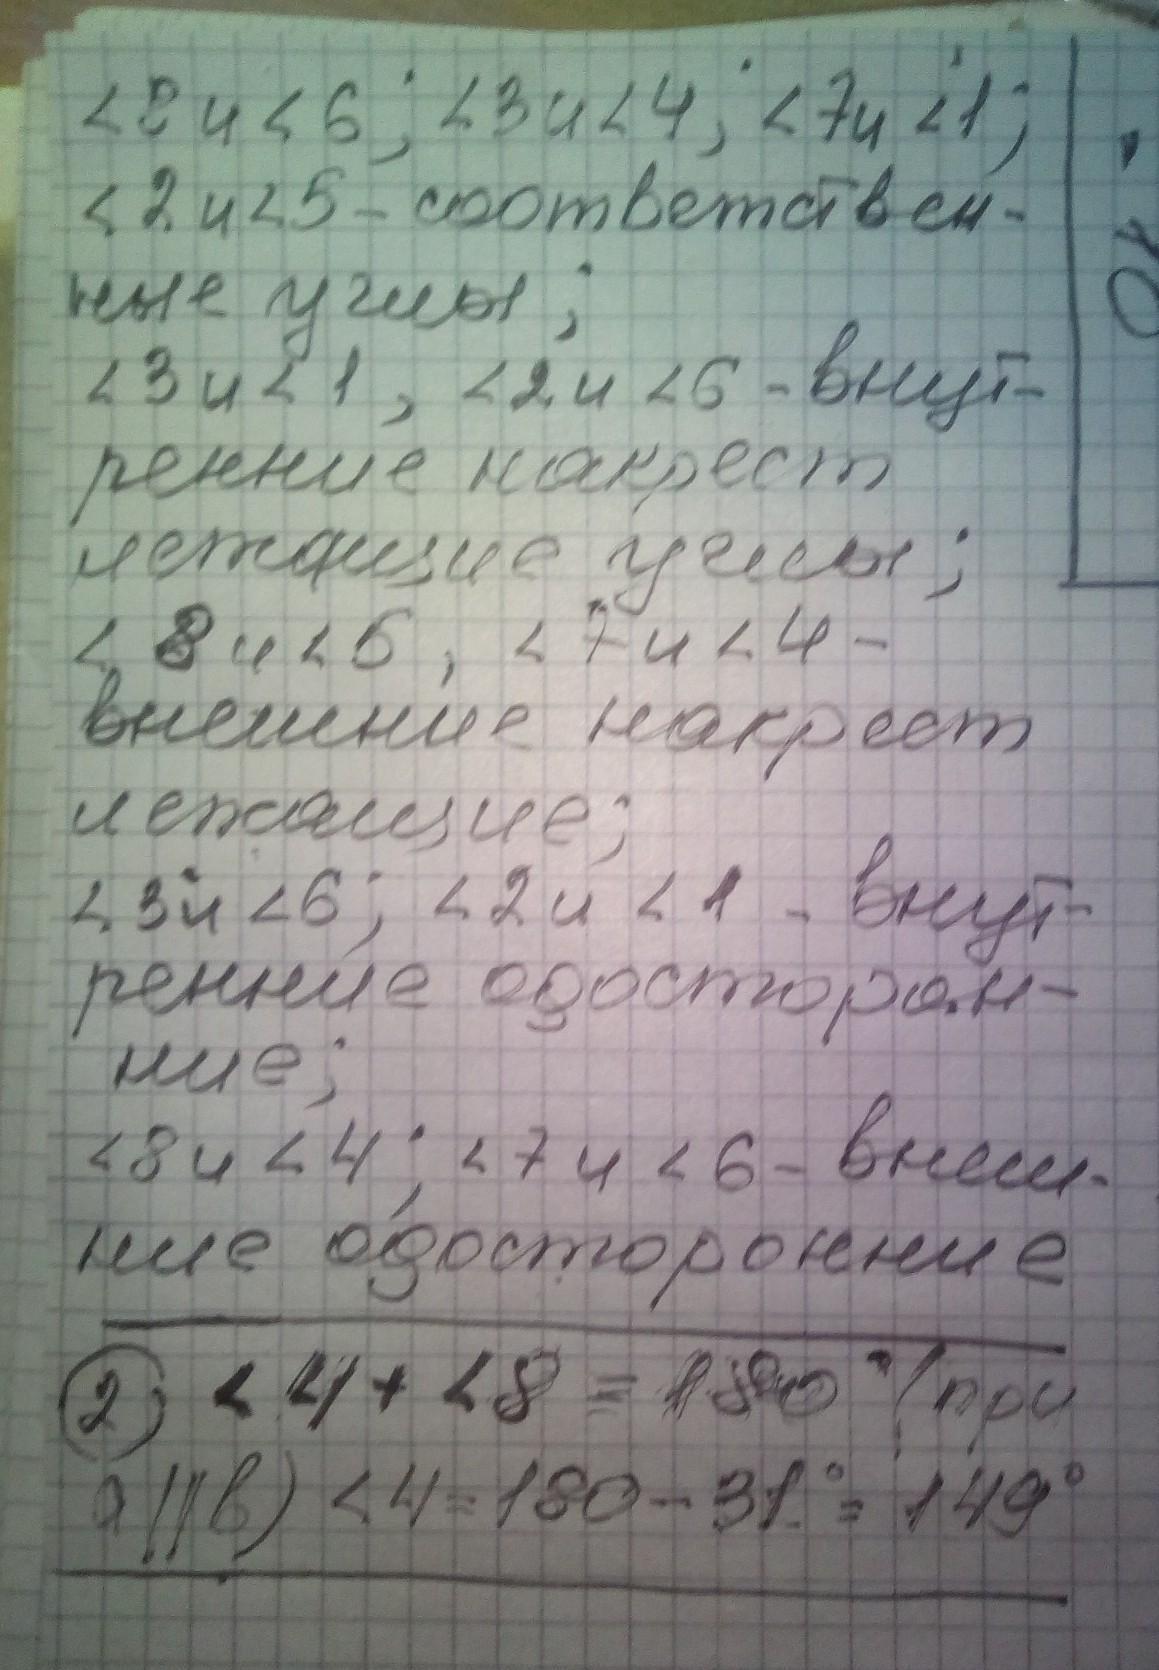 <8 и <6; <3 и <4; <7 и <1;
<2 и <5 - соответствен-
ные углы;
<3 и <1, <2 и <6 - внут-
ренние накрест
лежащие углы;
<8 и <5, <7 и <4 -
внешние накрест
лежащие;
<3 и <6; <2 и <1 - внут-
ренние одосторон-
ние;
<8 и <4; <7 и <6 - внеш-
ние одосторонние
2) <4 + <8 = 180° (при
a || b) <4 = 180 - 31° = 149°
10